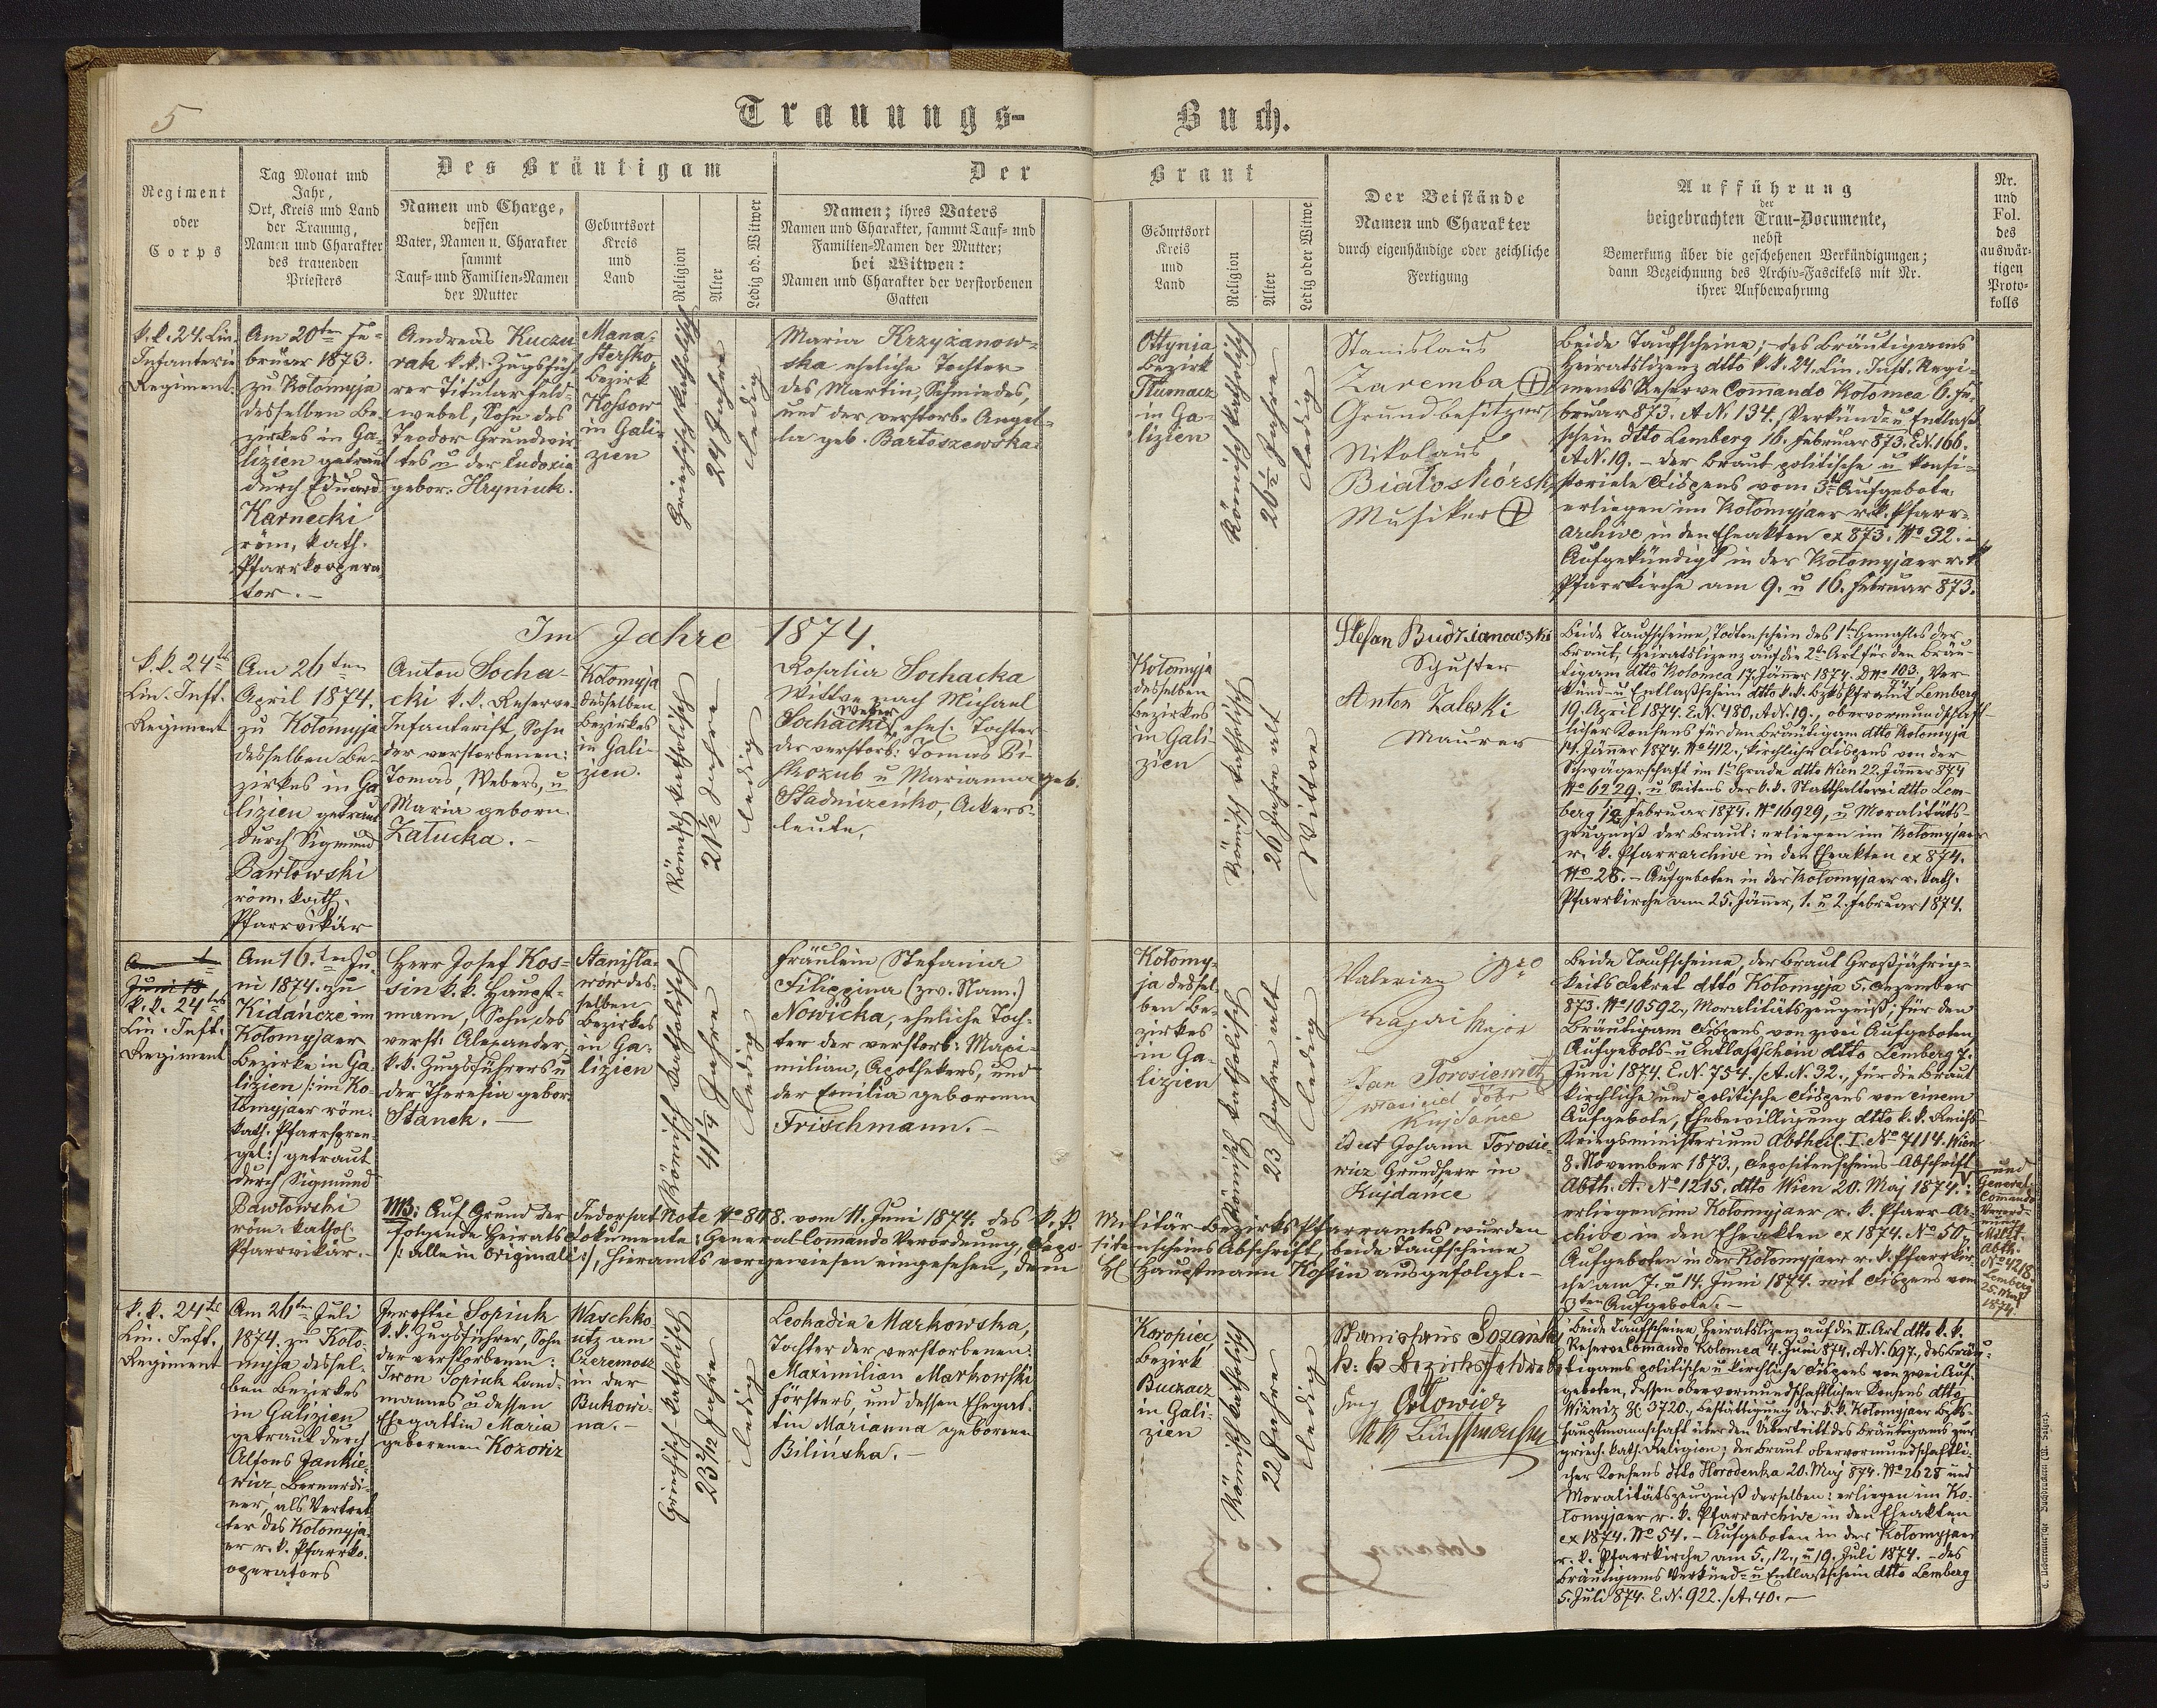 5
Trauungs-
Buch.
Regiment
oder
Corps
Tag Monat und
Jahr,
Ort, Kreis und Land
der Trauung,
Namen und Charakter
des trauenden
Priesters
Des Bräutigam
Namen und Charge,
dessen
Vater, Namen u. Charakter
sammt
Tauf- und Familien-Namen
der Mutter
Geburtsort
Kreis
und
Land
Religion
Alter
Ledig od. Witwer
Der
Namen; ihres Vaters
Namen und Charakter, sammt Tauf- und
Familien-Namen der Mutter;
bei Witwen:
Namen und Charakter der verstorbenen
Gatten
Braut
Geburtsort
Kreis
und
Land
Religion
Alter
Ledig oder Witwe
Der Beistände
Namen und Charakter
durch eigenhändige oder zeichliche
Fertigung
Aufführung
der
beigebrachten Trau-Documente,
nebst
Bemerkung über die geschehenen Verkündigungen;
dann Bezeichnung des Archiv-Fascikels mit Nr.
ihrer Aufbewahrung
Nr.
und
Fol.
des
auswär-
tigen
Proto-
kolls
k.k. 24. Lin.
Infanterie
Regiment.
Am 20ten Fe-
bruar 1873.
zu Kołomyja
desselben Be-
zirkes in Ga-
lizien getraut
durch Eduard
Karnecki
röm. kath.
Pfarrkoopera-
tor.-
Andreas Kuczu
rak k.k. Zugsfüh-
rer Titularfeld-
webel, Sohn des
Teodor Grundwir
tes u der Eudoxia
gebor. Hryniuk.
Mana-
stersko
Bezirk
Kossow
in Gali-
zien
Griechisch katholisch
24 Jahre
Ledig
Maria Krzyżanow-
ska eheliche Tochter
des Martin, Schmiedes,
und der verstorb. Angel-
la geb. Bartoszewska
Ottynia
Bezirk
Tłumacz
in Ga-
lizien
Römisch katholisch
26½ Jahre
Ledig
Stanislaus
Zaremba +
Grundbesitzer
Nikolaus
Białoskórski
Musiker +
Beide Taufscheine; des Bräutigams
Heiratslizenz dtto k.k. 24. Lin. Inft. Regi-
ments Reserve Commando Kolomea 6. Fe-
bruar 873. A N. 134. Verkünd- u Entlaß
schein dtto Lemberg 16. Februar 873. E.N. 166.
A N. 19. - der Braut politische u konsi-
storiele Dispens vom 3ten Aufgebote
erliegen im Kołomyjaer r.k. Pfarr-
archive in den Eheakten ex 873. No 32. -
Aufgekündigt in der Kołomyjaer r.k.
Pfarrkirche am 9. u 16. Februar 873.
Im Jahre 1874.
k.k. 24te
Lin. Inft.
Regiment
Am 26ten
April 1874.
zu Kołomyja
desselben Be-
zirkes in Ga
lizien getraut
durch Sigmund
Pawłowski
röm. kath.
Pfarrvikär
Anton Socha-
cki k.k. Reserve
Infanterist, Sohn
der verstorbenen:
Tomas, Webers, u
Maria geborn
Załucka. -
Kołomyja
desselben
Bezirkes
in Gali-
zien.
Römisch katholisch
21½ Jahre
Ledig
Rosalia Sochacka
Wittwe nach Michael
Weber
Sochacki, ehel. Tochter
der verstorb: Tomas Pi-
skozub u Marianna geb.
Stadniczeńko, Ackers-
leute,
Kołomyja
desselben
Bezirkes
in Gali-
zien
Römisch katholisch
26 Jahre alt
Wittwe
Stefan Budzianowski
Schuster
Anton Zaleski
Maurer
Beide Taufscheine, Todtenschein des 1ten Gemahles der
Braut, Heiratslizenz auf die 2te Art für den Bräu-
tigam dtto Kolomea 17. Jänner 1874. D No 103, Ver-
künd- u Entlaßschein dtto k.k. BzksPframt Lemberg
19. April 1874. E.N. 480. A.N. 19., obervormundschaft-
licher Konsens für den Bräutigam dtto Kolomyja
14. Jänner 1874. No 412., kirchliche Dispens von der
Schwägerschaft im 1ten Grade dtto Wien 22. Jänner 874
No 6229. u Seitens der k.k. Statthalterei dtto Lem-
berg 12 Februar 1874. No 16929, u Moralitäts-
zeugniß der Braut: erliegen im Kołomyjaer
r. k. Pfarrarchive in den Eheakten ex 874.
No 28. - Aufgeboten in der Kołomyjaer r. kath.
Pfarrkirche am 25. Jänner, 1. u 2. Februar 1874.
k.k. 24tes
Lin. Inft.
Regiment
Am 16.ten Ju-
ni 1874. zu
Kidańcze im
Kołomyjaer
Bezirke in Ga-
lizien /: im Ko-
łomyjaer röm.
kath. Pfarrspren-
gel:/ getraut
durch Sigmund
Pawłowski
röm. kathol.
Pfarrvikär.-
Herr Josef Kos-
sin k.k. Haupt-
mann, Sohn des
verst: Alexander
k.k. Zugsführers u
der Theresia gebor
Stanek. -
Stanisla-
wów des-
selben
Bezirkes
in Ga-
lizien
Römisch katholisch
41¼ Jahre
Ledig
Fräulein Stefania
Filippina (zw. Nam.)
Nowicka, eheliche Toch-
ter der verstorb: Maxi-
milian, Apothekers, und
der Emilia geborenen
Frischmann. -
Kołomy-
ja dessel-
ben Be-
zirkes
in Ga-
lizien
Römisch katholisch
23 Jahre alt
Ledig
Valerian
Major
Jan Torosiewicz
własciciel dóbr
Kujdańce
Johann Torosie-
wicz Grundherr in
Kujdance
Beide Taufscheine, der Braut Großjährig-
keits Dekret dtto Kołomyja 5. Dezember
873. No 10592, Moralitätszeugniß; für den
Bräutigam Dispens von zwei Aufgeboten
Aufgebots- u Entlaßschein dtto Lemberg 7.
Juni 1874. E.N. 754. /A.N. 32., für die Braut
kirchliche und politische Dispens von einem
Aufgebote, Ehebewilligung dtto k.k. Reichs-
Kriegsministerium Abtheil. I. No 7114. Wien
8. November 1873., Depositenscheins-Abschrift
Abth. A. No 1215. dtto Wien 20. Maj 1874.:
erliegen im Kołomyjaer r. k. Pfarr-Ar-
chive in den Eheakten ex 1874. No 50.
Aufgeboten in der Kołomyjaer r.k. Pfarrkir-
che am 7. u 14. Juni 1874. mit Dispens vom
3ten Aufgebote. -
und
General-
Comando
Verord-
nung
Milit.
Abth.
No 4218.
Lemberg
25. Maj
1874.
NB: Auf Grund der Indorsat Note No 808. vom 11. Juni 1874. des k.k. Militär-Bezirks-Pfarramtes wurden
folgende Heirats Dokumente: General-Comando Verordnung, Depo- sitenscheins Abschrift, beide Taufscheine
/: alle in Originale :/, hieramts vorgewiesen eingesehen, dem H. Hauptmann Kossin ausgefolgt. -
k.k. 24tes
Lin. Inft.
Regiment
Am 26ten Juli
1874. zu Koło-
myja dessel-
ben Bezirkes
in Galizien
getraut durch
Alfons Jankie-
wicz Bernardi-
ner, als Vertret
ter des Kołomyja-
er r.k. Pfarrko-
operators
Jeroftei Sopiuk
k.k. Zugsführer, Sohn
der verstorbenen:
Iwon Sopiuk Land-
mannes u dessen
Ehegattin Maria
geborenen Kozoriz
Waschko-
utz am
Czeremosz
in der
Bukowi-
na. -
Griechisch-katholisch
23 2/12 Jahre
Ledig
Leokadia Markowska,
Tochter der verstorbenen:
Maximilian Markowski
Försters, und dessen Ehegat-
tin Marianna geborenen
Bilińska. -
Koropiec,
Bezirk
Buczacz
in Gali-
zien
Römisch katholisch
22 Jahre
Ledig
Stanislaus Sozański
k: k Bezirksfeldwebel
Orlowicz
Beide Taufscheine Heiratslizenz auf die II. Art dtto k.k.
ReserveComando Kolomea 4. Juni 874. A.N. 697., des Bräu-
tigams politische u kirchliche Dispens von zwei Auf-
geboten, dessen obervormundschaftlicher Konsens dtto
Wiżniz Z. 3720., Bestättigung der k.k. Kołomyjaer Bzks-
hauptmannschaft über den Übertritt des Bräutigams zur
griech. kath. Religion; der Braut obervormundschaftli-
cher Konsens dtto Horodenka 20. Maj 874. No 2628 und
Moralitätszeugniß derselben: erliegen im Ko-
łomyjaer r. k. Pfarrarchive in den Eheakten
ex 1874. No 54. - Aufgeboten in der Kołomyjaer
r. k. Pfarrkirche am 5., 12., u 19. Juli 1874. - des
Bräutigams Verkünd- u Entlaßschein dtto Lemberg
5. Juli 874. E.N. 922. /A. 40. -